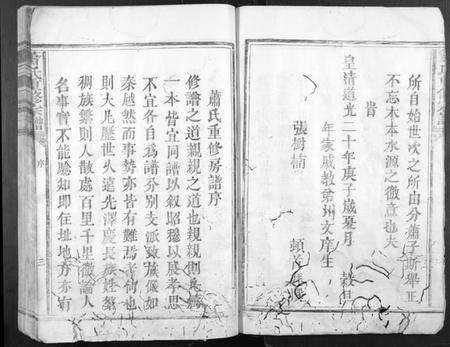 所自始世次之所由分蕭子斯舉正
不忘木本水源之微意也夫
旹
皇清道光二十年庚子歲夏月 穀旦
年家戚教弟州文庠生
張樹楠 頓
蕭氏重修房譜序
修譜之道親親之道也親親則
一本皆宜同譜以叙昭穆以展孝思
不宜各自為譜分别支派
秦越然而事勢亦皆有難焉者何也
則大凡歷世久遠先澤長族
稠族繁則人散處百里千里微論人
名事實不能悉知即住址地方亦
序
三